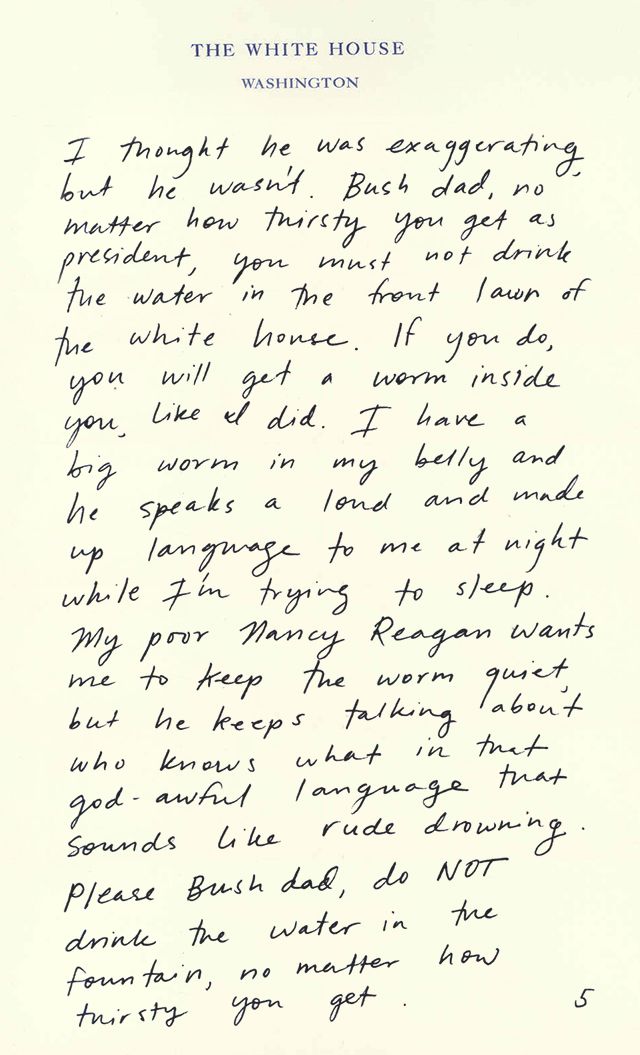 THE WHITE HOUSE
WASHINGTON
I thought he was exaggerating,
but he wasn't. Bush dad, no
matter how thirsty you get as
president, you must not drink
the water in the front lawn of
the white house. If you do,
you will get a worm inside
you, like I did. I have a
big worm in my belly and
he speaks a loud and made
up language to me at night
while I'm trying to sleep.
My poor Nancy Reagan wants
me to keep the worm quiet,
but he keeps talking about
who knows what in that
god-awful language that
sounds like rude drowning.
Please Bush dad, do NOT
drink the water in the
fountain, no matter how
thirsty you get.
5